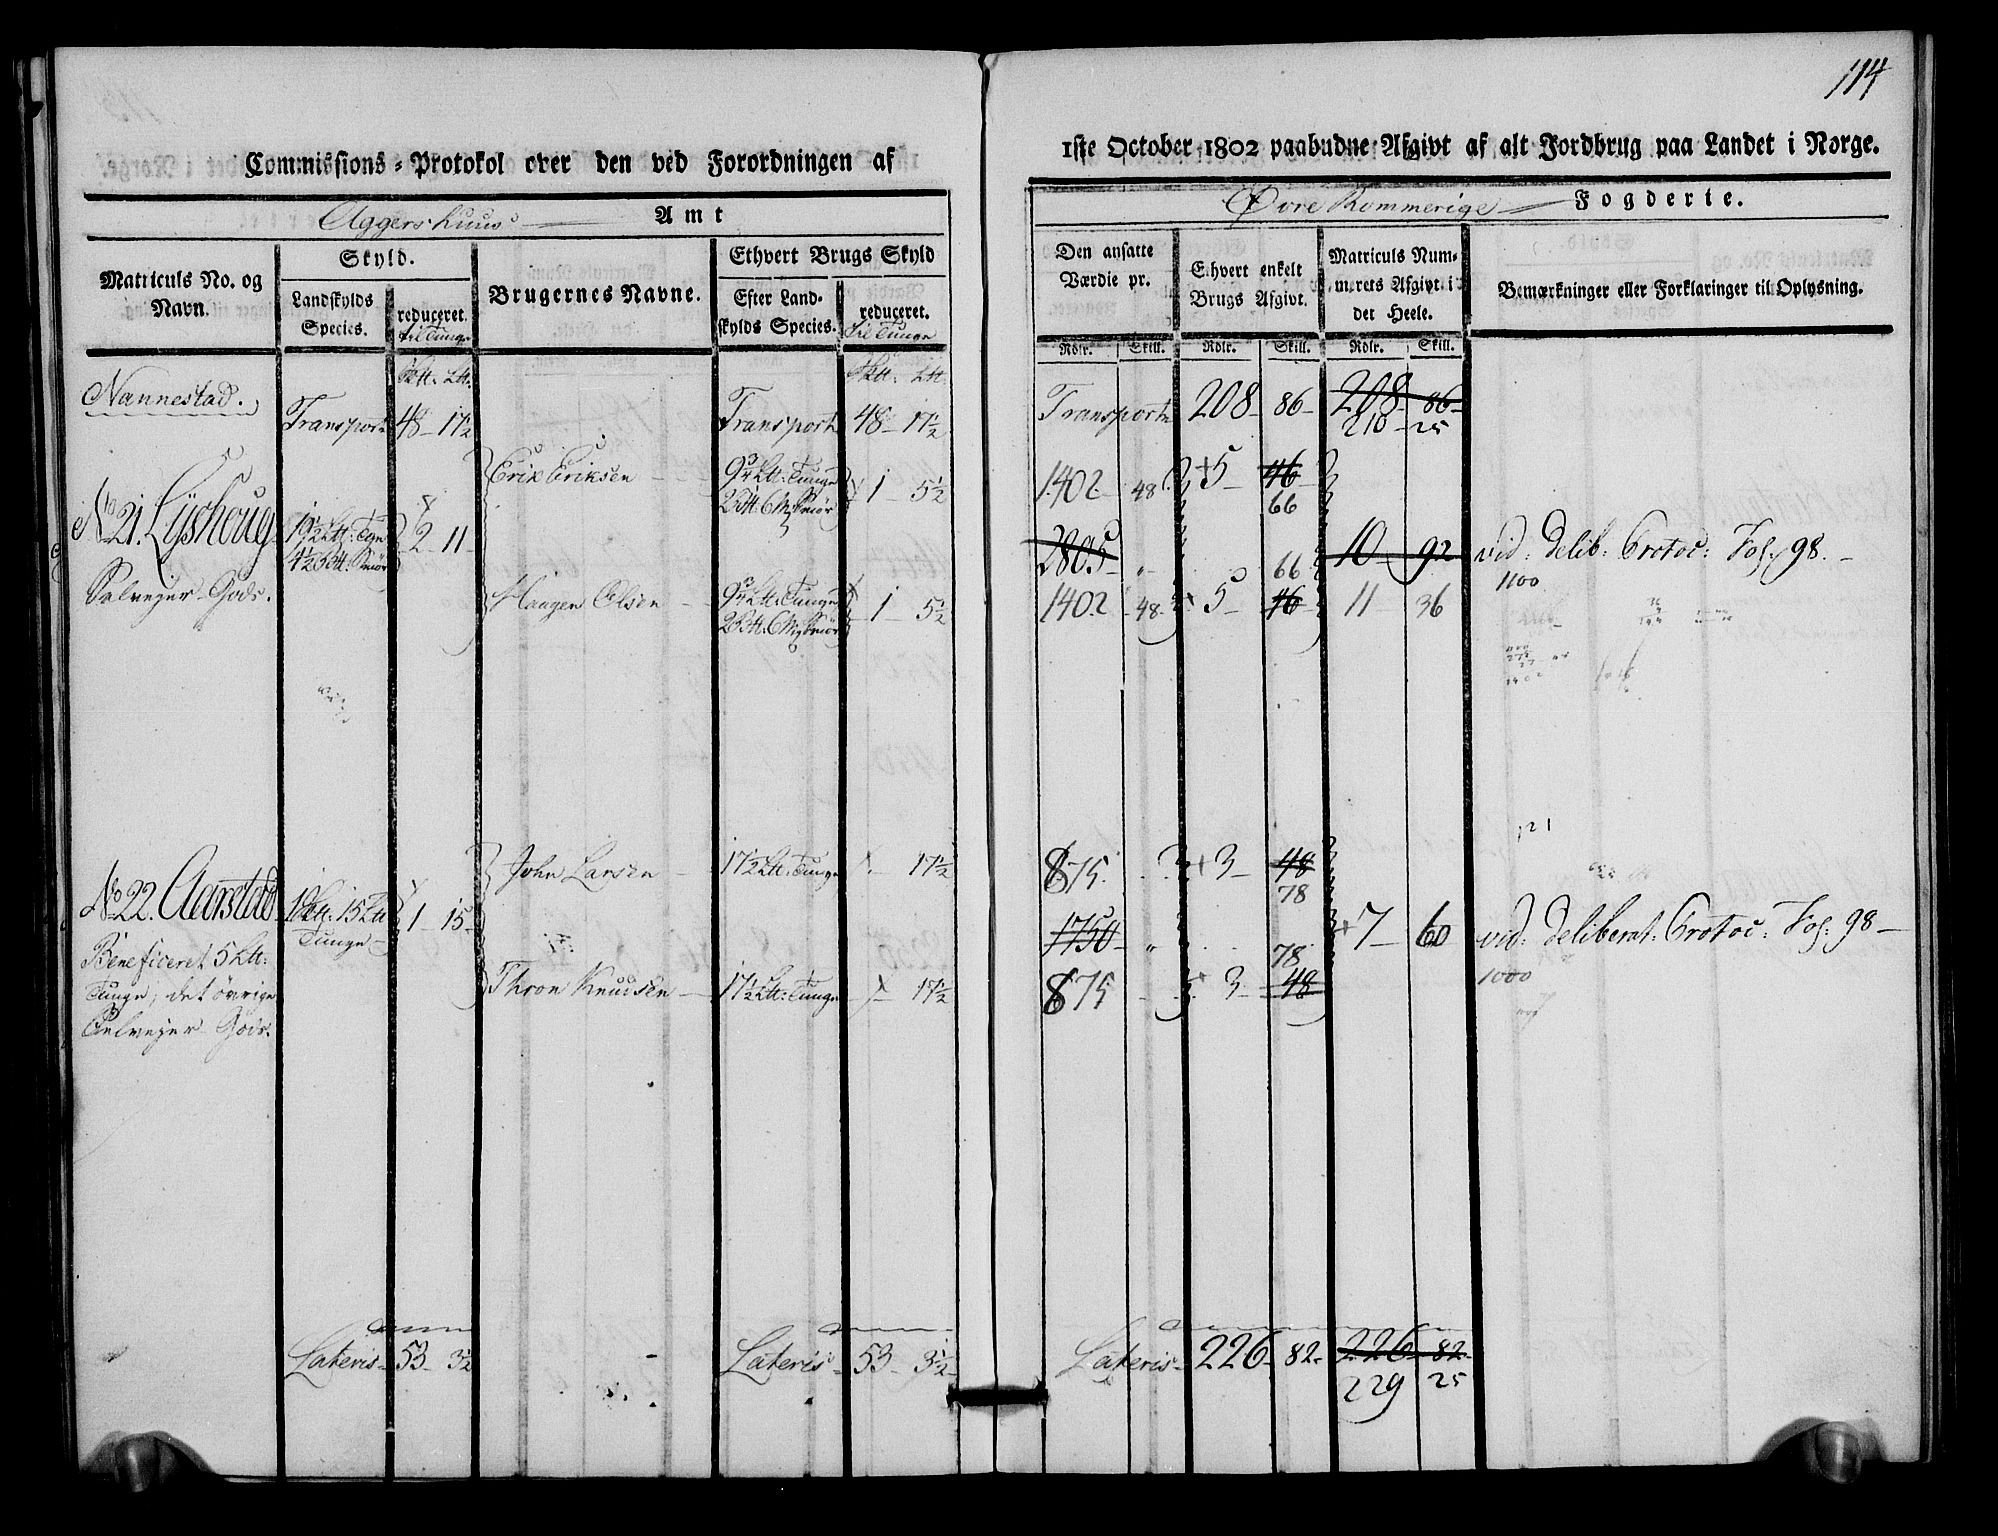 114
Commissions-Protokol over den ved Forordningen af
1ste October 1802 paabudne Afgivt af alt Jordbrug paa Landet i Norge.
Aggershuus Amt
Øvre Rommerige Fogderie.
Matriculs No. og Navn.
Skyld.
Landskylds Species.
reduceret.
til Tunge
Brugernes Navne.
Ethvert Brugs Skyld
Efter Landskylds Species.
reduceret.
til Tunge
Den ansatte Værdie pr.
Ethvert enkelt Brugs Afgivt.
Matriculs Nummerets Afgivt i det Heele.
Bemærkninger eller Forklaringer til Oplysning.
Rdlr. Skill. Rdlr. Skill. Rdlr. Skill.
Nannestad.
Transport 48 - 17½ Transport 48 - 17½ Transport 208 - 86 - 208 - 86 -
210 - 25
Erik Eriksen - 9¾ Ltt: Tunge 1 - 5½ 1402 - 48 5 46
2 Btt. 6 Mk Smör 66
No 21. Lyshoug 19½ Ltt: Tung 2 - 11 - 2805 - „ 10 - 92 vid: Delib: Protoc: Fol: 98. -
4½ Btt. Smör 66 1100
Selvejer Gods. Haagen Olsen - 9¾ Ltt: Tunge 1 - 5½ 1402 - 48 - 5 - 46 11 36
2 Btt. 6 Mk Smör
John Larsen - 17½ Ltt: Tunge 17½ 875 . 3 - 48
78
No 22. Aarstad 1 15 Ltt 1 - 15 - 1750 - „ 7 - 60 vid: Deliberat: Protoc: Fol: 98 -
Tunge - 78 1000
Beneficeret 5 Ltt: Thron Knudsen - 17½ Ltt: Tunge - 17½ 875 - 3 - 48
Tunge, det övrige
Selvejer Gods.
Lateris - 53 - 3½ Lateris - 53 - 3½ - Lateris - 226 - 82 - 226 - 82 -
229 25